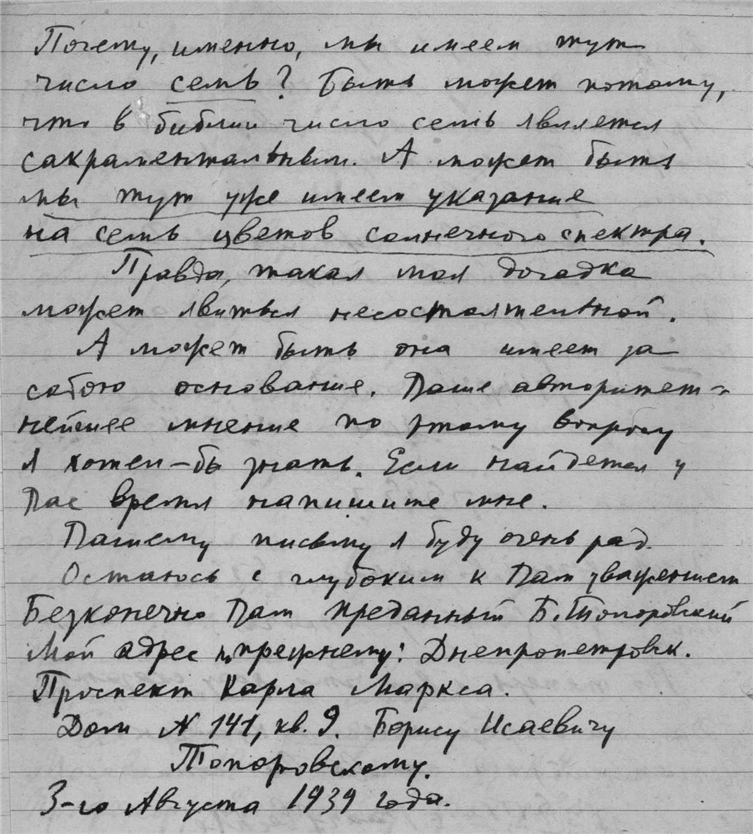 Почему, именно, мы имеем тут
число семь? Быть может потому,
что в библии число семь является
сакраментальным. А может быть
мы тут уже имеем указание
на семь цветов солнечного спектра.
Правда, такая моя догадка
может явиться несостоятельной.
А может быть она имеет за
собою основание. Ваше авторитет-
нейшее мнение по этому вопросу
я хотел-бы знать. Если найдется у
Вас время напишите мне.
Вашему письму я буду очень рад.
Остаюсь с глубоким к Вам уважением
Безконечно Вам преданный Б. Топоровский
Мой адрес по прежнему: Днепропетровск.
Проспект Карла Маркса.
Дом N 141, кв. 9. Борису Исаевичу
Топоровскому.
3-го Августа 1939 года.